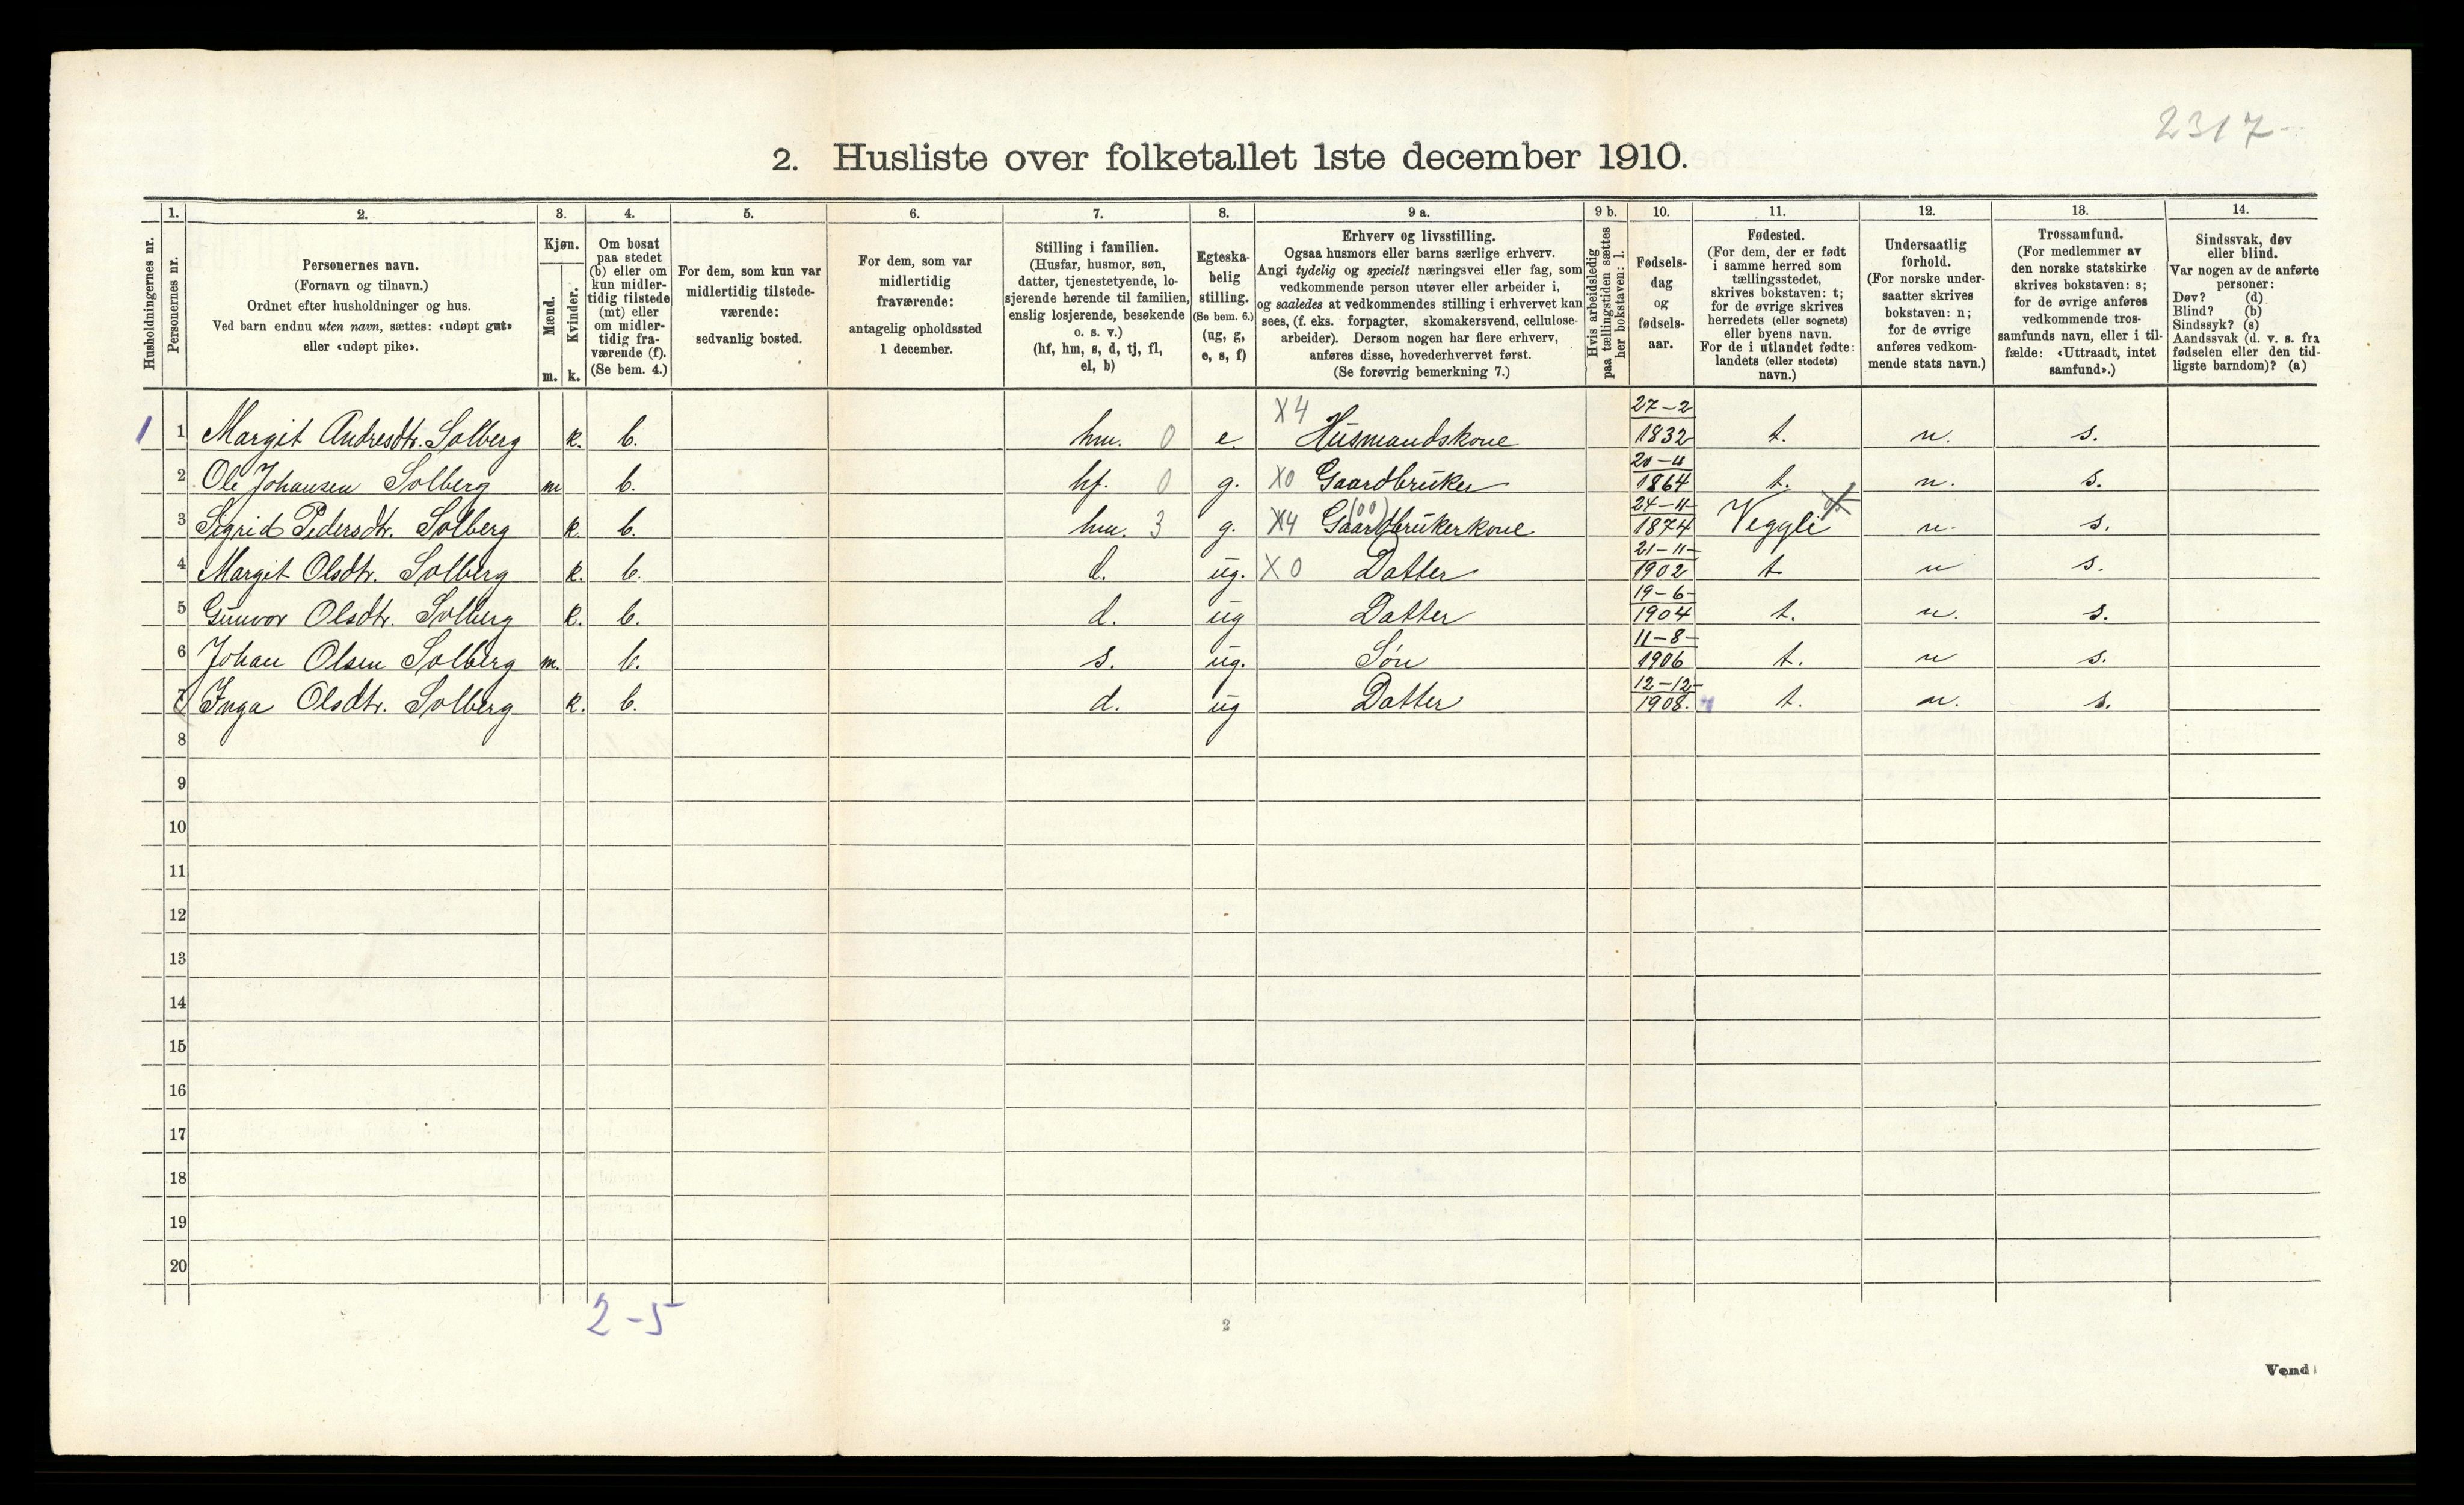 2317-
2. Husliste over folketallet 1ste december 1910.
Husholdningernes nr.
1.
Personernes nr.
2.
Personernes navn.
(Fornavn og tilnavn.)
Ordnet efter husholdninger og hus.
Ved barn endnu uten navn, sættes: «udøpt gut»
eller «udøpt pike».
3.
Kjøn.
Mænd.
Kvinder.
m. k.
4.
Om bosat
paa stedet
(b) eller om
kun midler-
tidig tilstede
(mt) eller
om midler-
tidig fra-
værende (f).
(Se bem. 4.)
5.
For dem, som kun var
midlertidig tilstede-
værende:
sedvanlig bosted.
6.
For dem, som var
midlertidig
fraværende:
antagelig opholdssted
1 december.
7.
Stilling i familien.
(Husfar, husmor, søn,
datter, tjenestetyende, lo-
sjerende hørende til familien,
enslig losjerende, besøkende
o. s. v.)
(hf, hm, s, d, tj, fl,
el, b)
8.
Egteska-
belig
stilling.
(Se bem. 6.)
(ug, g,
e, s, f)
9 a.
Erhverv og livsstilling.
Ogsaa husmors eller barns særlige erhverv.
Angi tydelig og specielt næringsvei eller fag, som
vedkommende person utøver eller arbeider i,
og saaledes at vedkommendes stilling i erhvervet kan
sees, (f. eks. forpagter, skomakersvend, cellulose-
arbeider). Dersom nogen har flere erhverv,
anføres disse, hovederhvervet først.
(Se forøvrig bemerkning 7.)
9 b.
Hvis arbeidsledig
paa tællingstiden sættes
her bokstaven: l.
10.
Fødsels-
dag
og
fødsels-
aar.
11.
Fødested.
(For dem, der er født
i samme herred som
tællingsstedet,
skrives bokstaven: t;
for de øvrige skrives
herredets (eller sognets)
eller byens navn.
For de i utlandet fødte:
landets (eller stedets)
navn.)
12.
Undersaatlig
forhold.
(For norske under-
saatter skrives
bokstaven: n;
for de øvrige
anføres vedkom-
mende stats navn.)
13.
Trossamfund.
(For medlemmer av
den norske statskirke
skrives bokstaven: s;
for de øvrige anføres
vedkommende tros-
samfunds navn, eller i til-
fælde: «Uttraadt, intet
samfund».)
14.
Sindssvak, døv
eller blind.
Var nogen av de anførte
personer:
Døv? (d)
Blind? (b)
Sindssyk? (s)
Aandssvak (d. v. s. fra
fødselen eller den tid-
ligste barndom)? (a)
1 1 Margit Andresdtr. Solberg k. b. hm. 0 e. X4 Husmandskone 27-2 1832 t. n. s.
2 Ole Johansen Solberg m b. hf. 0 g. X0 Gaardbruker 20-11 1864 t. n. s.
3 Sigrid Pedersdtr. Solberg k. b. hm. 3 g. X4 (00) Gaardbrukerkone 24-11- 1874 Veggli n. s.
4 Margit Olsdtr. Solberg k. b. d. ug. X0 Datter 21-11- 1902 t n s.
5 Gunvor Olsdtr. Solberg k. b. d. ug Datter 19-6- 1904 t. n. s.
6 Johan Olsen Solberg m. b. s. ug. Søn 11-8- 1906 t. n s.
7 Inga Olsdtr. Solberg k. b. d. ug Datter 12-12- 1908. t. n. s.
8
9
10
11
12
13
14
15
16
17
18
19
20
2-5
2
Vend